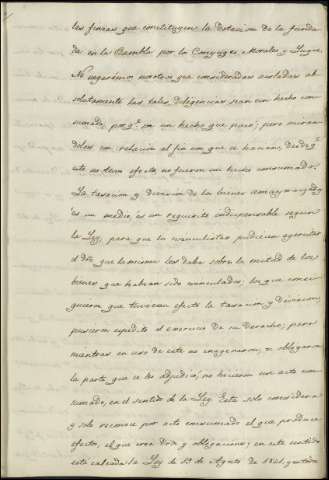 las fincas que constituyen la dotacion de la funda
da en la Rambla por los Conyuges Morales y Luque.
No negaremos nosotros que consideradas aisladas ab
solutamente las tales diligencias sean un hecho con
sumado, porqe. son un hecho que pasó; pero miran
dolas con relacion al fin con que se hacian, desde qe.
este no tuvo efecto, no fueron un hecho consumado.
La tasacion y division de los bienes amayorazgados
es un medio, es un requisito indispensable segun
la Ley, para que los vinculistas pudiesen egercitar
el dro. que la misma les daba sobre la mitad de los
bienes que habian sido vinculados; los que consi
guieron que tuviera efecto la tasacion y division,
pusieron espedito el egercicio de su derecho; pero
mientras en uso de este no enagenaron, u obligaron
la parte que se les adjudicó, no hicieron un acto con
sumado, en el sentido de la Ley. Esta solo considera
y solo reconoce por acto consumado el que produce
efectos, el que crea dros. y obligaciones; en este sentido
está calcada la Ley de de Agosto de 1841, cuando